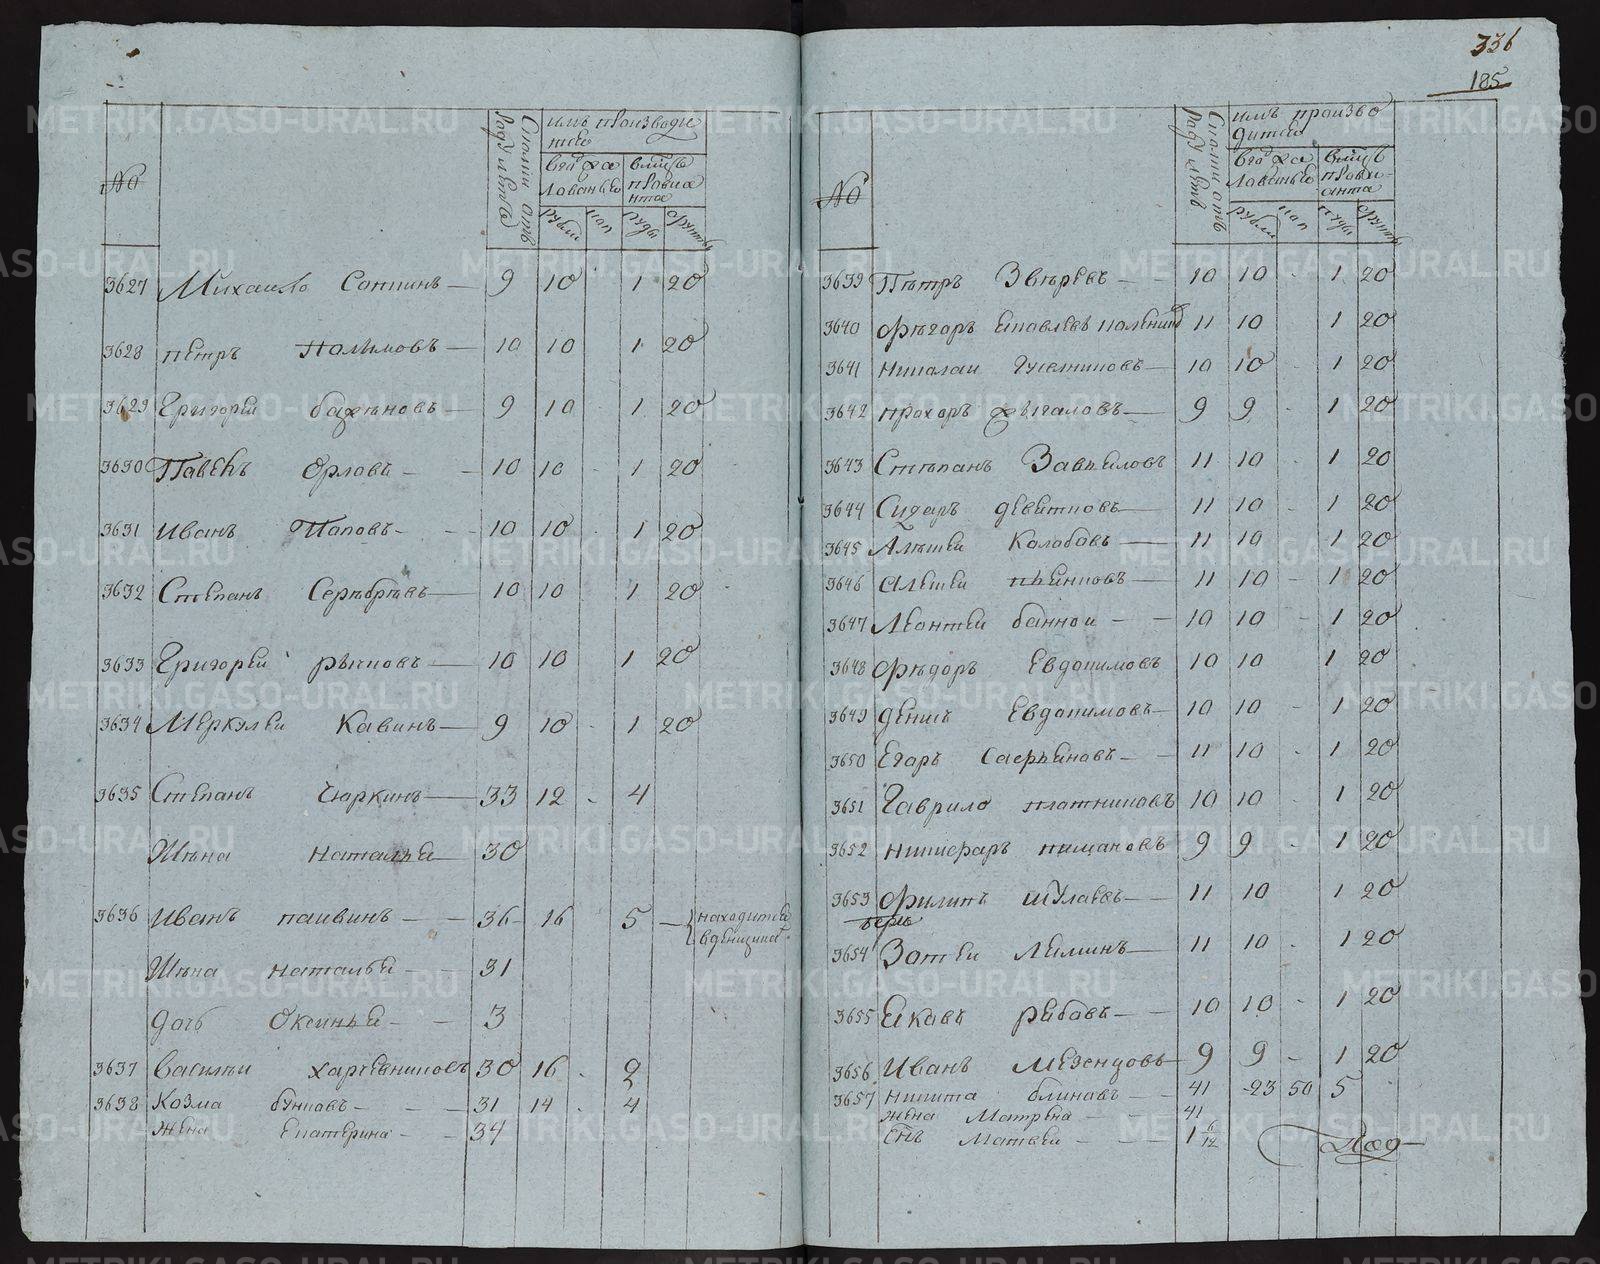 336
185
№
имъ производи
вгод жа
лованья
вмцъ
провиа
нта
рубли
коп
пуды
фунты
3627 Михаило Сонтинъ 9 10 1 20
3628 петръ Налимовъ 10 10 1 20
3629 Григореи баженовъ 9 10 1 20
3630 Павелъ Орловъ 10 10 1 20
3631 иванъ Поповъ 10 10 1 20
3632 Степанъ Серебревъ 10 10 1 20
3633 Григореи рычковъ 10 10 1 20
3634 Меркулеи Кавинъ 9 10 1 20
3635 Степанъ Чюркинъ 33 12 4
Жена наталья 30
3636 иванъ паивинъ 36 16 5 находитца
вденщика
Жена наталья 31
дочь Оксинья 3
3637 василеи харчевниковъ 30 16 2
3638 Козма бунковъ 31 14 4
жена екатерина 34
№
имъ произво
дитца
вгод жа
лованья
вмцъ
прови-
анта
рубли
коп
пуды
фунты
3639 Петръ Зверевъ 10 10 1 20
3640 Фегоръ 11 10 1 20
3641 николаи Гуселниковъ 10 10 1 20
3642 прохоръ жыгаловъ 9 9 1 20
3643 Степанъ Завьяловъ 11 10 1 20
3644 Сидаръ девятковъ 11 10 1 20
3645 Алексеи Колобовъ 11 10 1 20
3646 алексеи пьянковъ 11 10 1 20
3647 Леонтеи баннои 10 10 1 20
3648 Федоръ Евдокимовъ 10 10 1 20
3649 денисъ Евдокимовъ 10 10 1 20
3650 Егаръ Саерьяновъ 11 10 1 20
3651 Гаврило плотниковъ 10 10 1 20
3652 никифаръ пищаковъ 9 9 1 20
3653 Филипъ шулаевъ 11 10 1 20
3654 Зотеи Ляминъ 11 10 1 20
3655 Яковъ рябовъ 10 10 1 20
3656 Иванъ Мезенцовъ 9 9 1 20
3657 никита блиновъ 41 23 50 5
жена Матрена 41
снъ Матвеи 1 6/12